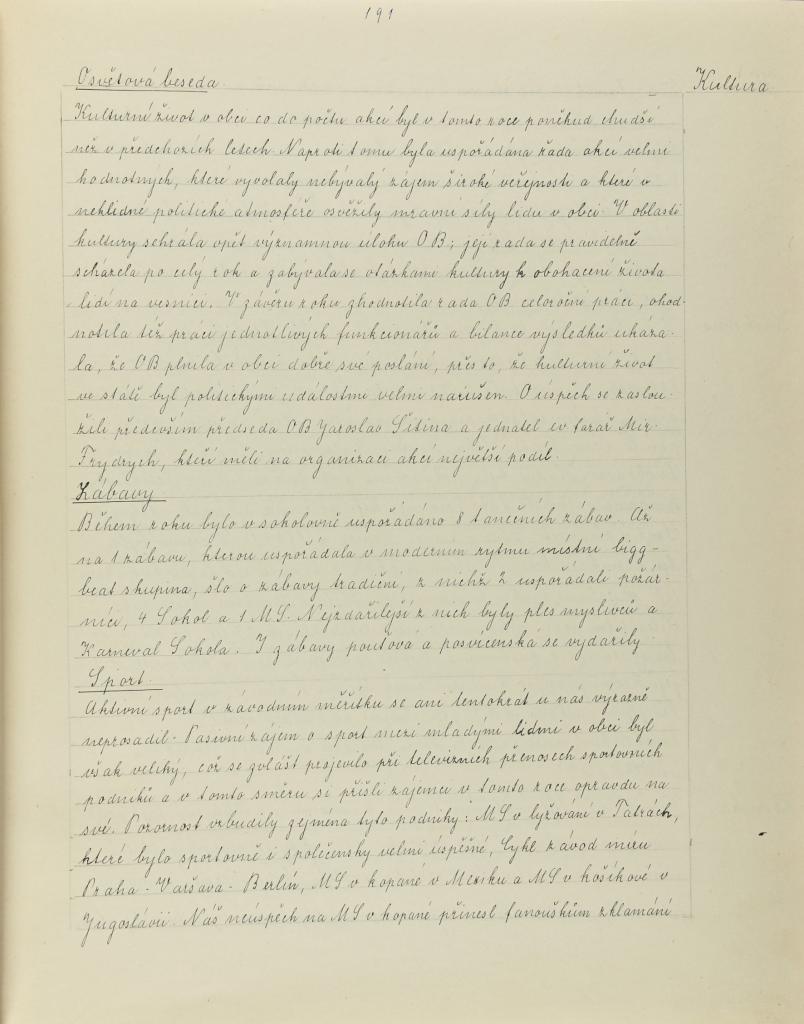 191
Osvětová beseda.
Kultura
Kulturní život v obci co do počtu akcí byl v tomto roce poněkud chudší
než v předchozích letech. Naproti tomu byla uspořádána řada akcí velmi
hodnotných, které vyvolaly nebývalý zájem široké veřejnosti a které v
neklidné politické atmosféře osvěžily mravní síly lidu v obci. V oblasti
kultury sehrála opět významnou úlohu OB; její rada se pravidelně
scházela po celý rok a zabývala se otázkami kultury k obohacení života
lidí na vesnici. V závěru roku zhodnotila rada OB celoroční práci, ohod-
notila též práci jednotlivých funkcionářů a bilance výsledků ukáza-
la, že OB plnila v obci dobře své poslání, přes to, že kulturní život
ve státě byl politickými událostmi velmi narušen. O úspěch se zaslou-
žili především předseda OB Jaroslav Šitina a jednatel ev farář Mir.
Frydrych, kteří měli na organizaci akcí největší podíl.
Zábavy
Během roku bylo v sokolovně uspořádáno 8 tanečních zábav. Až
na 1 zábavu, kterou uspořádala v moderním rytmu místní bigg-
beat skupina, šlo o zábavy tradiční, z nichž 2 uspořádali požár-
níci, 4 Sokol a 1 MS. Nejzdařilejší z nich byly ples myslivců a
Karneval Sokola. I zábavy pouťová a posvícenská se vydařily.
Sport.
Aktivní sport v závodním měřítku se ani tentokrát u nás výrazně
neprosadil. Pasivní zájem o sport mezi mladými lidmi v obci byl
však veliký, což se zvlášť projevilo při televizních přenosech sportovních
podniků a v tomto směru si přišli zájemci v tomto roce opravdu na
své. Pozornost vzbudily zejména tyto podniky: MS v lyžování v Tatrách,
které bylo sportovně i společensky velmi úspěšné, Cykl závod míru
Praha - Varšava - Berlín, MS v kopané v Mexiku a MS v košíkové v
Jugoslávii. Náš neúspěch na MS v kopané přinesl fanouškům zklamání